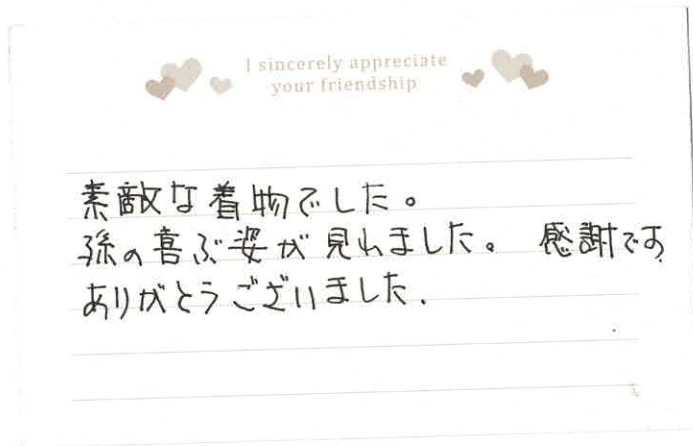 I sincerely appreciate
your friendship
素敵な着物でした。
孫の喜ぶ姿が見れました。 感謝です
ありがとうございました.